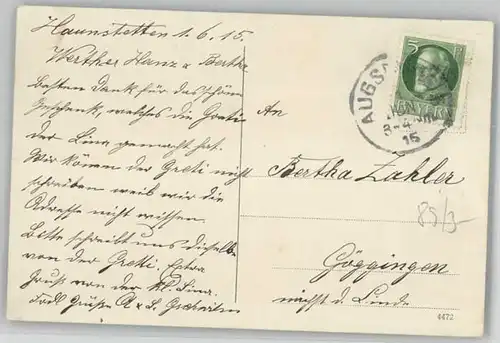 Haunstetten 1.6.15.
Werther Hanz u Bertha
besten Dank für das schöne
Geschenk, welches die Greti
der Lina gemacht hat.
Wir können der Greti nicht
schreiben weil wir die
Adresse nicht wissen.
Bitte schreibt uns dieselbe
von der Gretti. Extra
Gruss von der kl. Lina.
Grüße A u L
An
Bertha Zahler
Göggingen
nächst d. Linde
5
AUGSB
BAYERN
15
85/3-
4472